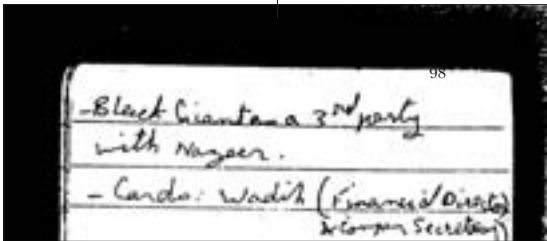 98
- Black Giant a 3rd party
with Nazeer.
- Cards: Wadih (Financial Director
& Compan Secretary)